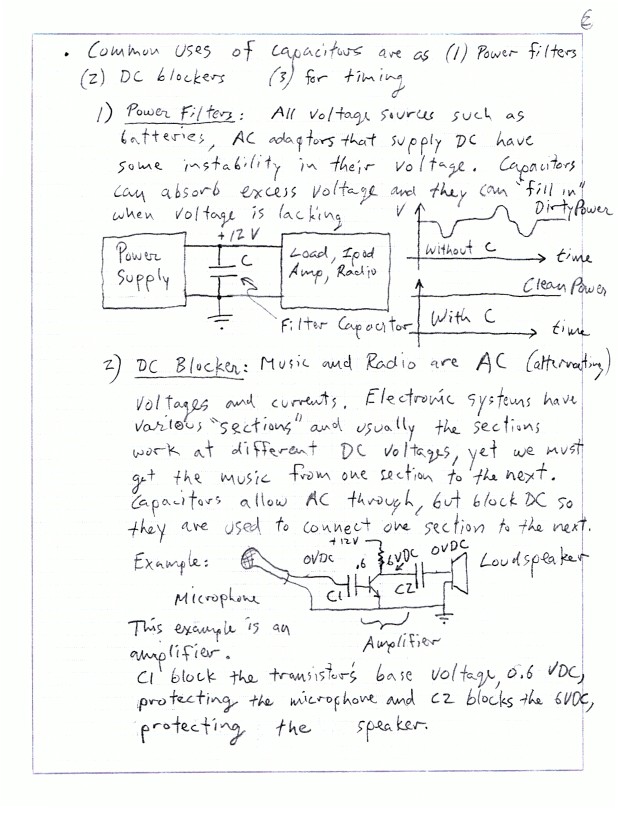 3
• Common uses of capacitors are as (1) Power filters
(2) DC blockers (3) for timing
1) Power Filters: All voltage sources such as
batteries, AC adaptors that supply DC have
some instability in their voltage. Capacitors
can absorb excess voltage and they can "fill in"
when voltage is lacking
V
Dirty Power
Without C
time
+12V
Power
Supply
C
Load, Ipod
Amp, Radio
Filter Capacitor
Clean Power
With C
time
2) DC Blocker: Music and Radio are AC (alternating)
voltages and currents. Electronic systems have
various "sections" and usually the sections
work at different DC voltages, yet we must
get the music from one section to the next.
Capacitors allow AC through, but block DC so
they are used to connect one section to the next.
Example:
+12V
0VDC
.6
6VDC
0VDC
Loudspeaker
C1
C2
Microphone
Amplifier
This example is an
amplifier.
C1 block the transistor's base voltage, 0.6 VDC,
protecting the microphone and C2 blocks the 6VDC,
protecting the speaker.